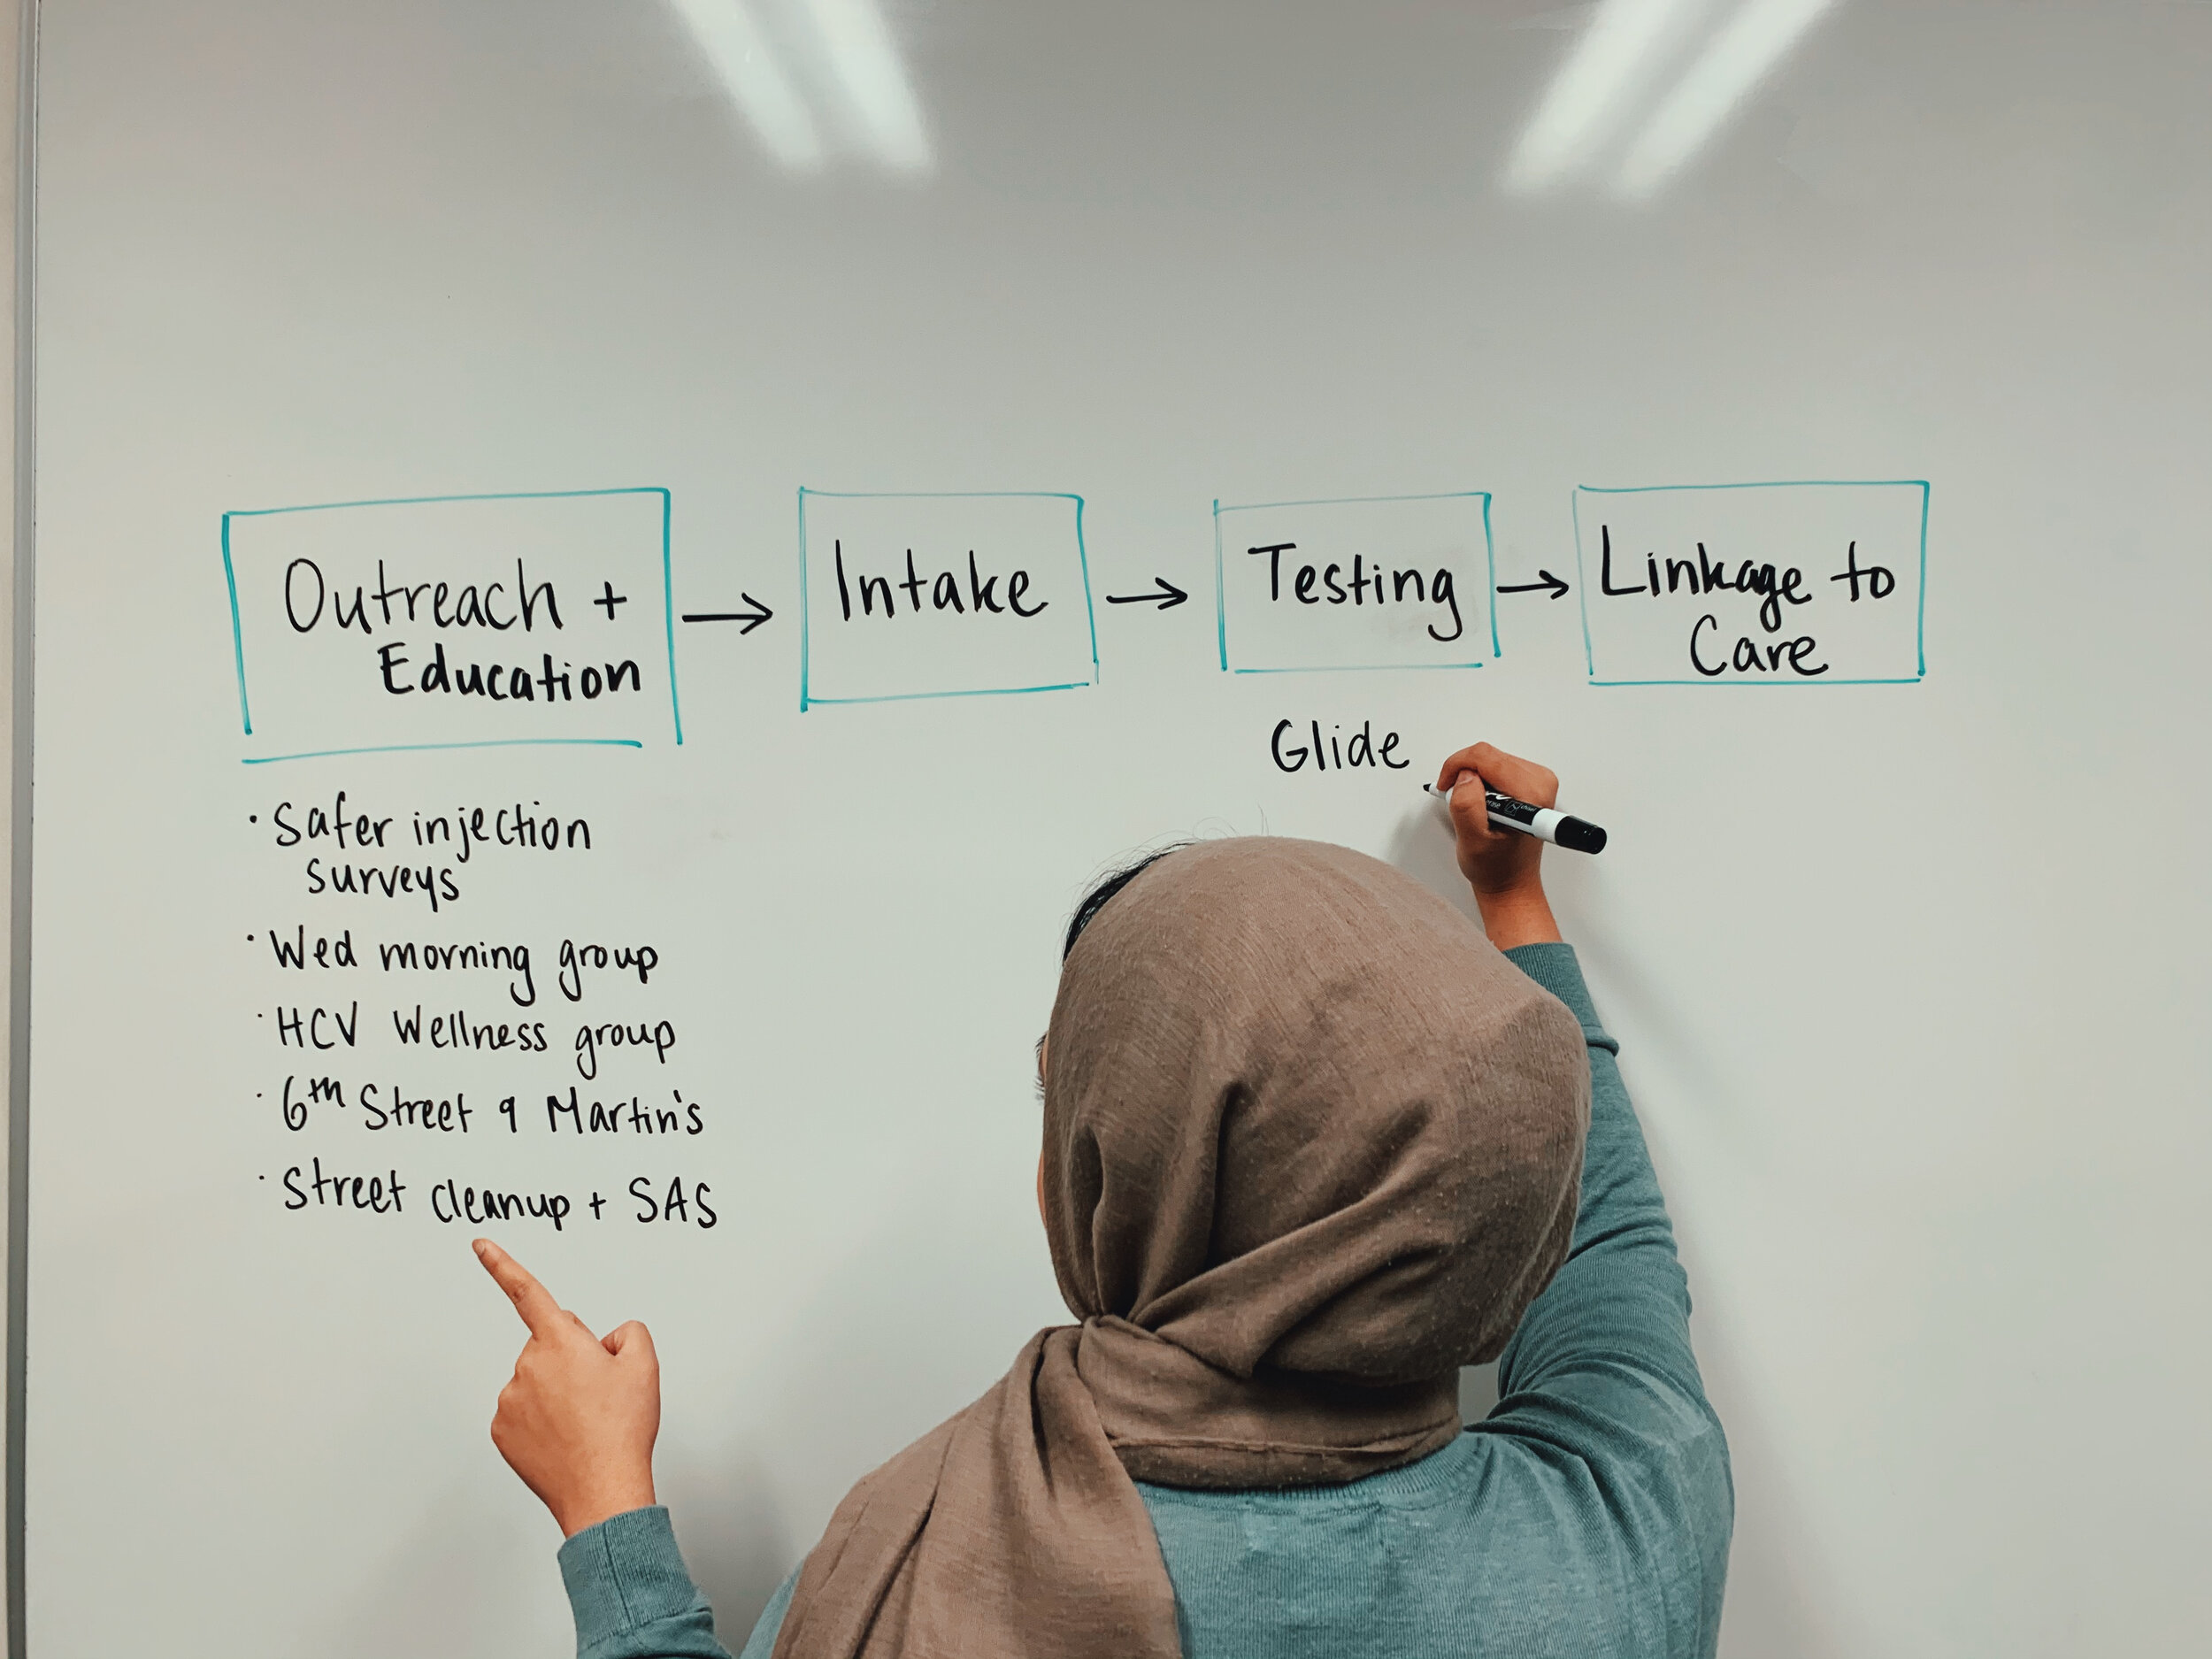 Outreach +
Education
→
Intake
→
Testing
→
Linkage to
Care
Glide
· Safer injection
surveys
· Wed morning group
· HCV Wellness group
· 6th Street & Martin's
· Street cleanup + SAS